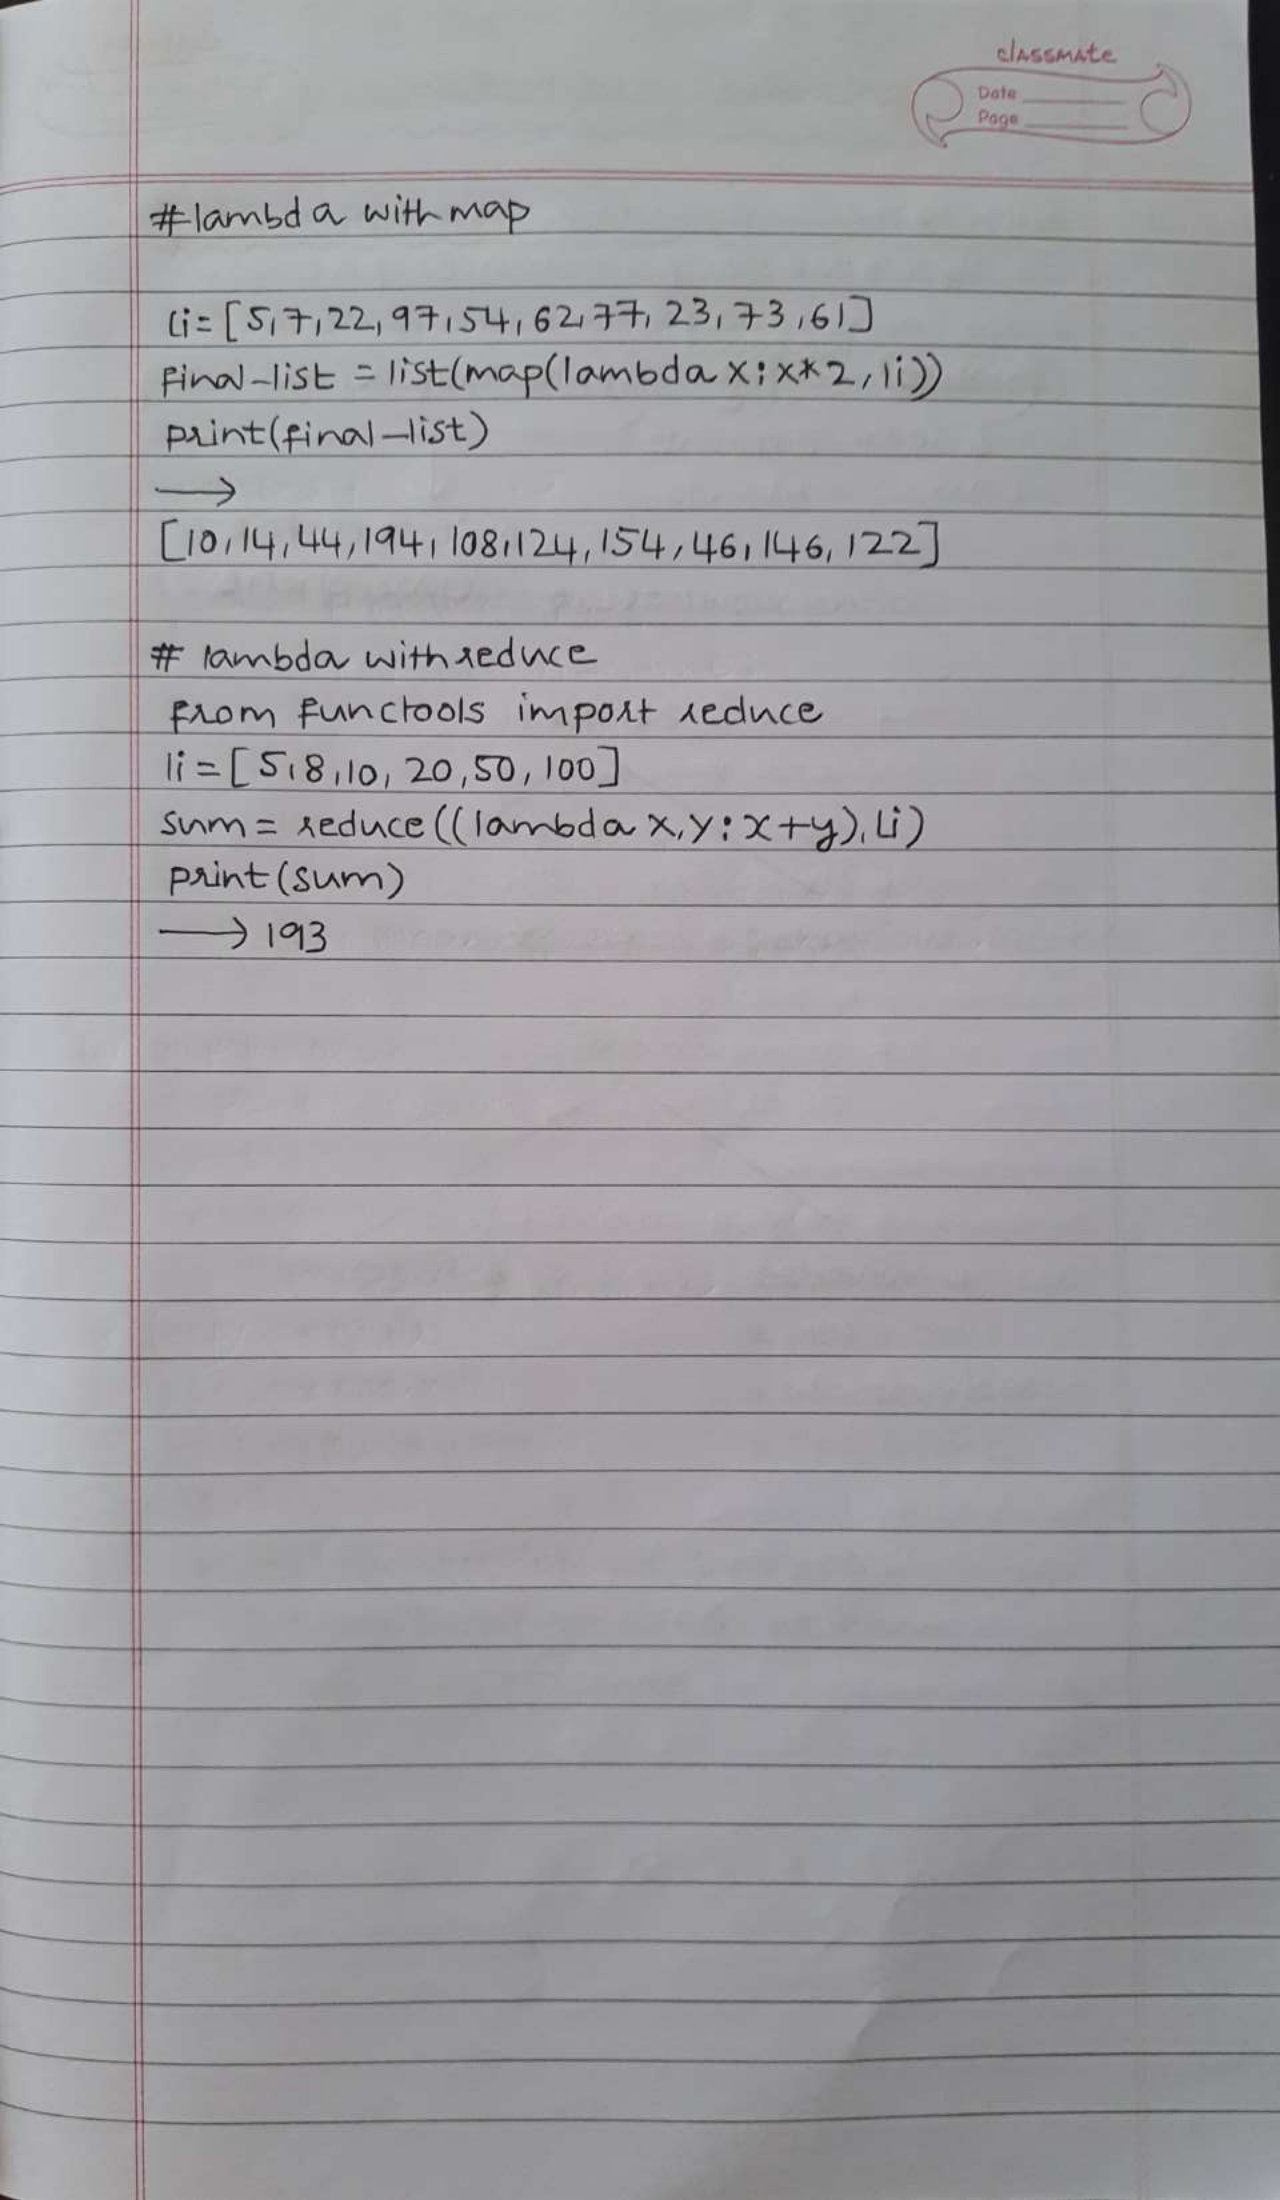 classmate
Date
Page
#lambda with map
li=[5,7,22,97,54,62,77,23,73,61]
final-list = list(map(lambda x:x*2,li))
print(final-list)
→
[10,14,44,194,108,124,154,46,146,122]
# lambda with reduce
from functools import reduce
li=[5,8,10,20,50,100]
sum= reduce((lambda x,y:x+y),li)
print(sum)
→ 193